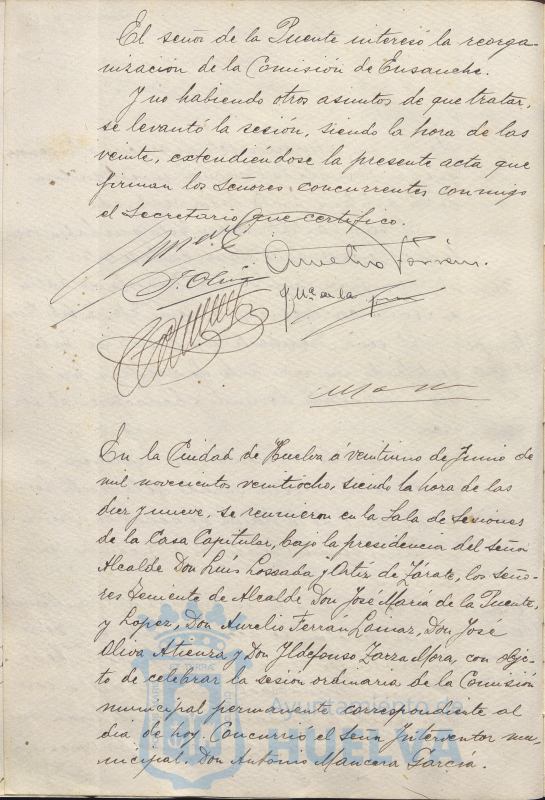 El señor de la Puente interesó la reorga-
nización de la Comisión de Ensanche.
Y no habiendo otros asuntos de que tratar,
se levantó la sesión, siendo la hora de las
veinte, extendiéndose la presente acta que
firman los señores concurrentes conmigo
el Secretario que certifico.
J. Oliva
Aurelio Ferrán
J. Mª de la
En la Ciudad de Huelva á veintiuno de Junio de
mil novecientos veintiocho, siendo la hora de las
diez y nueve, se reunieron en la Sala de Sesiones
de la Casa Capitular, bajo la presidencia del señor
Alcalde Don Luís Lossada y Ortíz de Zárate, los seño-
res Teniente de Alcalde Don José María de la Puente,
y López, Don Aurelio Ferrán Lamaz, Don José
Oliva Atienza y Don Ildefonso Zarza Mora, con obje-
to de celebrar la sesion ordinaria de la Comisión
municipal permanente correspondiente al
dia de hoy. Concurrió el señor Interventor mu-
nicipal. Don Antonio Mancera García.
Ayuntamiento de
HUELVA